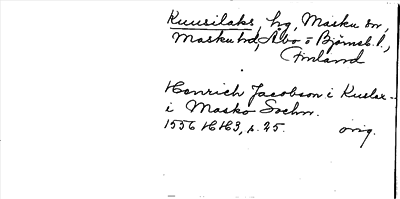 Kuusilaks, hg, Masku sn,
Masku hd, Åbo o Björneb. l.,
Finland
Henrich Jacobson i Kuslax-
i Masko Sochn.
1556 HH3, s. 25. orig.